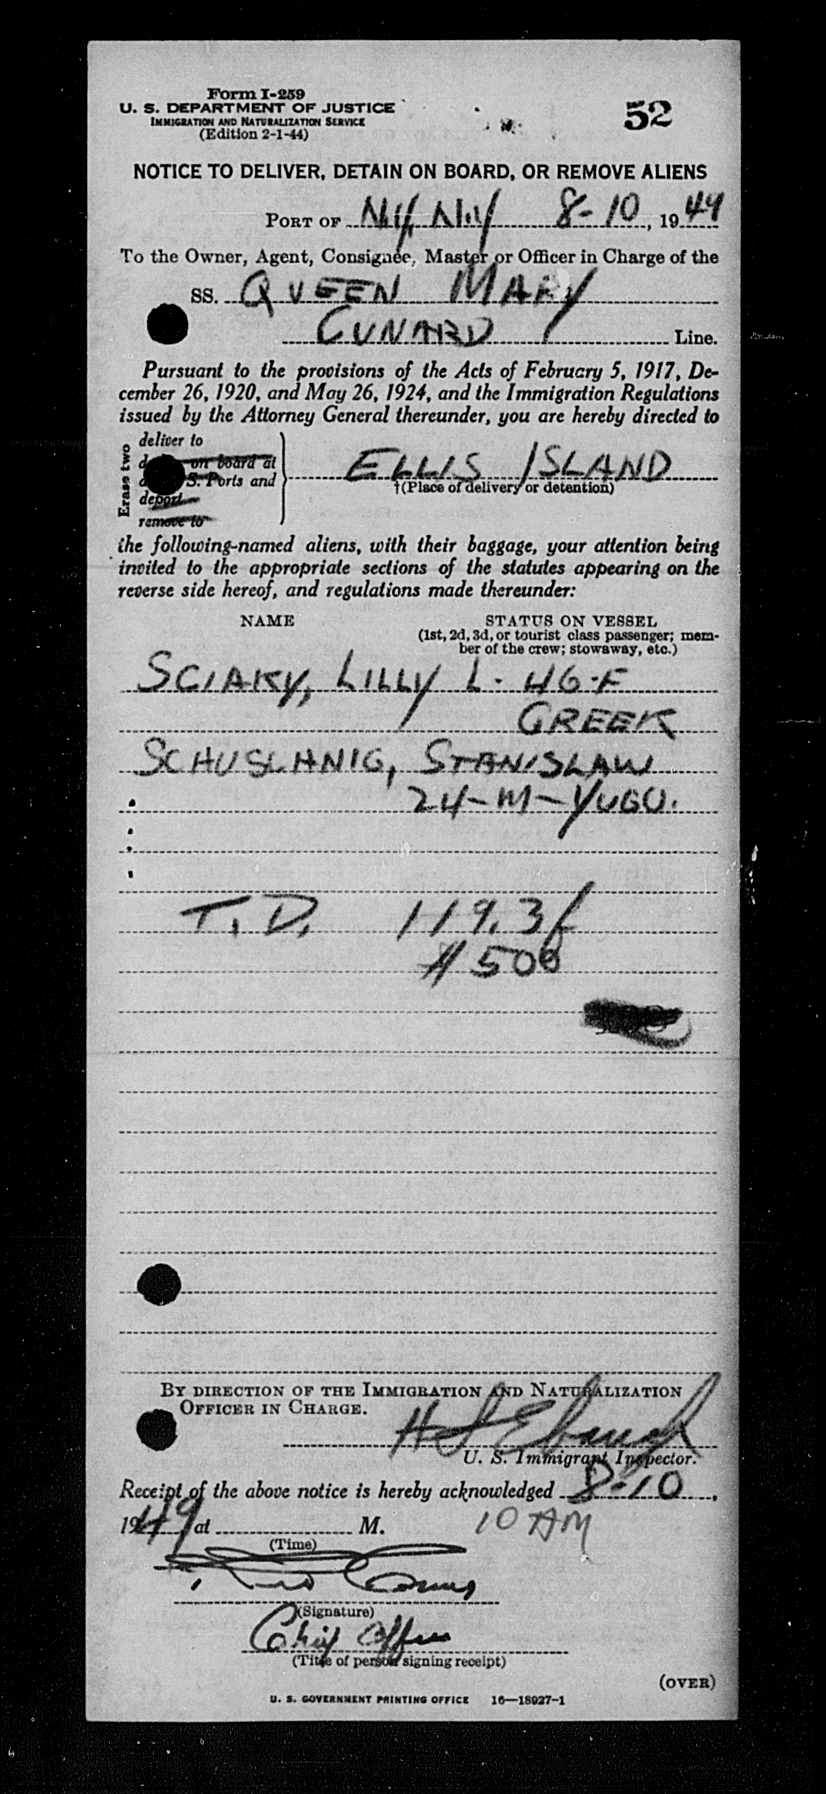 Form I-259
52
U. S. DEPARTMENT OF JUSTICE
IMMIGRATION AND NATURALIZATION SERVICE
(Edition 2-1-44)
NOTICE TO DELIVER, DETAIN ON BOARD, OR REMOVE ALIENS
PORT OF N.Y. N.Y 8-10, 1949
To the Owner, Agent, Consignee, Master or Officer in Charge of the
SS. QUEEN MARY
CUNARD Line.
Pursuant to the provisions of the Acts of February 5, 1917, De-
cember 26, 1920, and May 26, 1924, and the Immigration Regulations
issued by the Attorney General thereunder, you are hereby directed to
Erase two
deliver to
on board at
S. Ports and
deport
remove to
ELLIS ISLAND
†(Place of delivery or detention)
the following-named aliens, with their baggage, your attention being
invited to the appropriate sections of the statutes appearing on the
reverse side hereof, and regulations made thereunder:
NAME STATUS ON VESSEL
(1st, 2d, 3d, or tourist class passenger; mem-
ber of the crew; stowaway, etc.)
SCIAKY, LILLY L. 46-F
GREEK
SCHUSLANIG, STANISLAW
24-M-YUGO.
T. D. 119.3f
#500
BY DIRECTION OF THE IMMIGRATION AND NATURALIZATION
OFFICER IN CHARGE.
U. S. Immigrant Inspector.
Receipt of the above notice is hereby acknowledged 8-10,
1949 at M. 10 AM
(Time)
(Signature)
Chief Officer
(Title of person signing receipt)
(OVER)
U. S. GOVERNMENT PRINTING OFFICE 16—18927-1